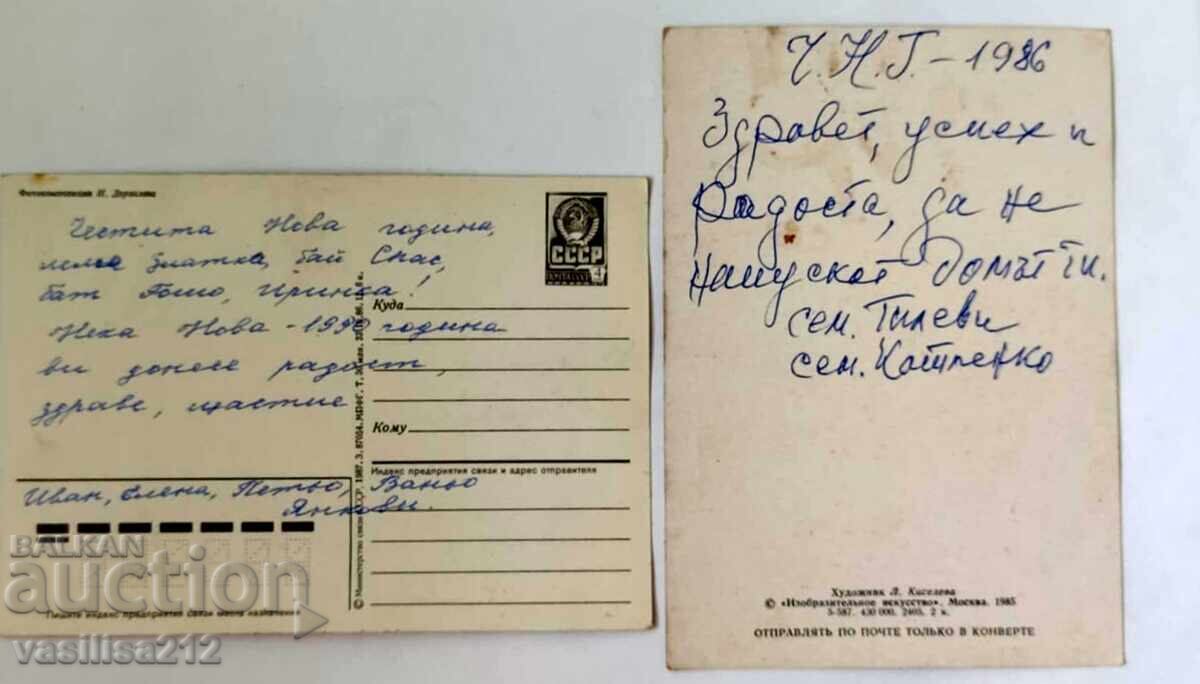 Фотокомпозиция И. Дергилева
Честита Нова година,
леля Златка, бай Спас,
бат Гошо, Иринка!
Нека Нова - 1990 година
ви донесе радост,
здраве, щастие
Иван, Елена, Петьо, Ваньо
Янкови.
СССР
4
Куда
Кому
Индекс предприятия связи и адрес отправителя
Пишите индекс предприятия связи места назначения
© Министерство связи СССР, 1987.
Ч.Н.Г. - 1986
Здравет, успех и
Радоста, да не
напускат домът ти.
сем. Тилеви
сем. Котленко
Художник Л. Киселева
© «Изобразительное искусство». Москва. 1985
5-587. 430 000. 2405. 2 к.
ОТПРАВЛЯТЬ ПО ПОЧТЕ ТОЛЬКО В КОНВЕРТЕ
BALKAN
auction
vasilisa212